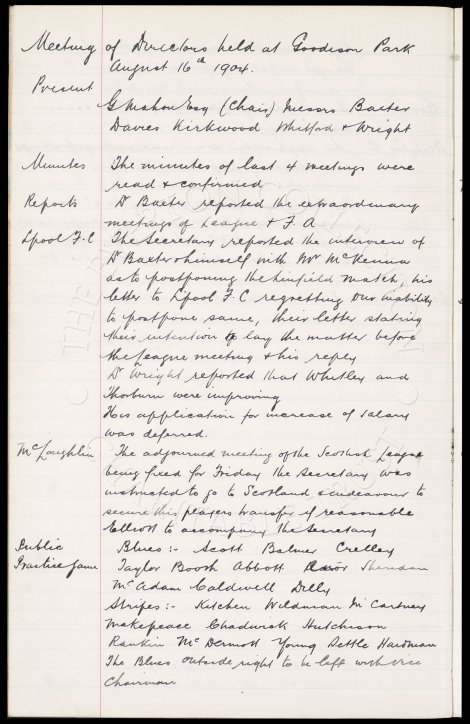 Meeting of Directors held at Goodison Park
August 16th 1904.
Present
G Mahon Esq (Chair) Messrs Baxter
Davies Kirkwood Whitford & Wright
Minutes The minutes of last 4 meetings were
read & confirmed
Reports Dr Baxter reported the extraordinary
meetings of League & F. A
Lpool F. C The Secretary reported the interview of
Dr Baxter & himself with Mr McKenna
as to postponing the Linfield match, his
letter to Lpool F. C regretting our inability
to postpone same, their letter stating
their intention to lay the matter before
the League meeting & his reply
Dr Wright reported that Whitley and
Thorburn were improving
His application for increase of salary
was deferred.
McLoughlin The adjourned meeting of the Scottish League
being fixed for Friday the Secretary was
instructed to go to Scotland & endeavour to
secure this players transfer if reasonable
Elliott to accompany the Secretary
Public Blues :- Scott Balmer Crelley
Practice Game Taylor Booth Abbott Sheridan
McAdam Caldwell Dilly
Stripes :- Kitchen Wildman McCartney
Makepeace Chadwick Hutchison
Rankin McDermott Young Settle Hardman
The Blues outside right to be left with vice
Chairman